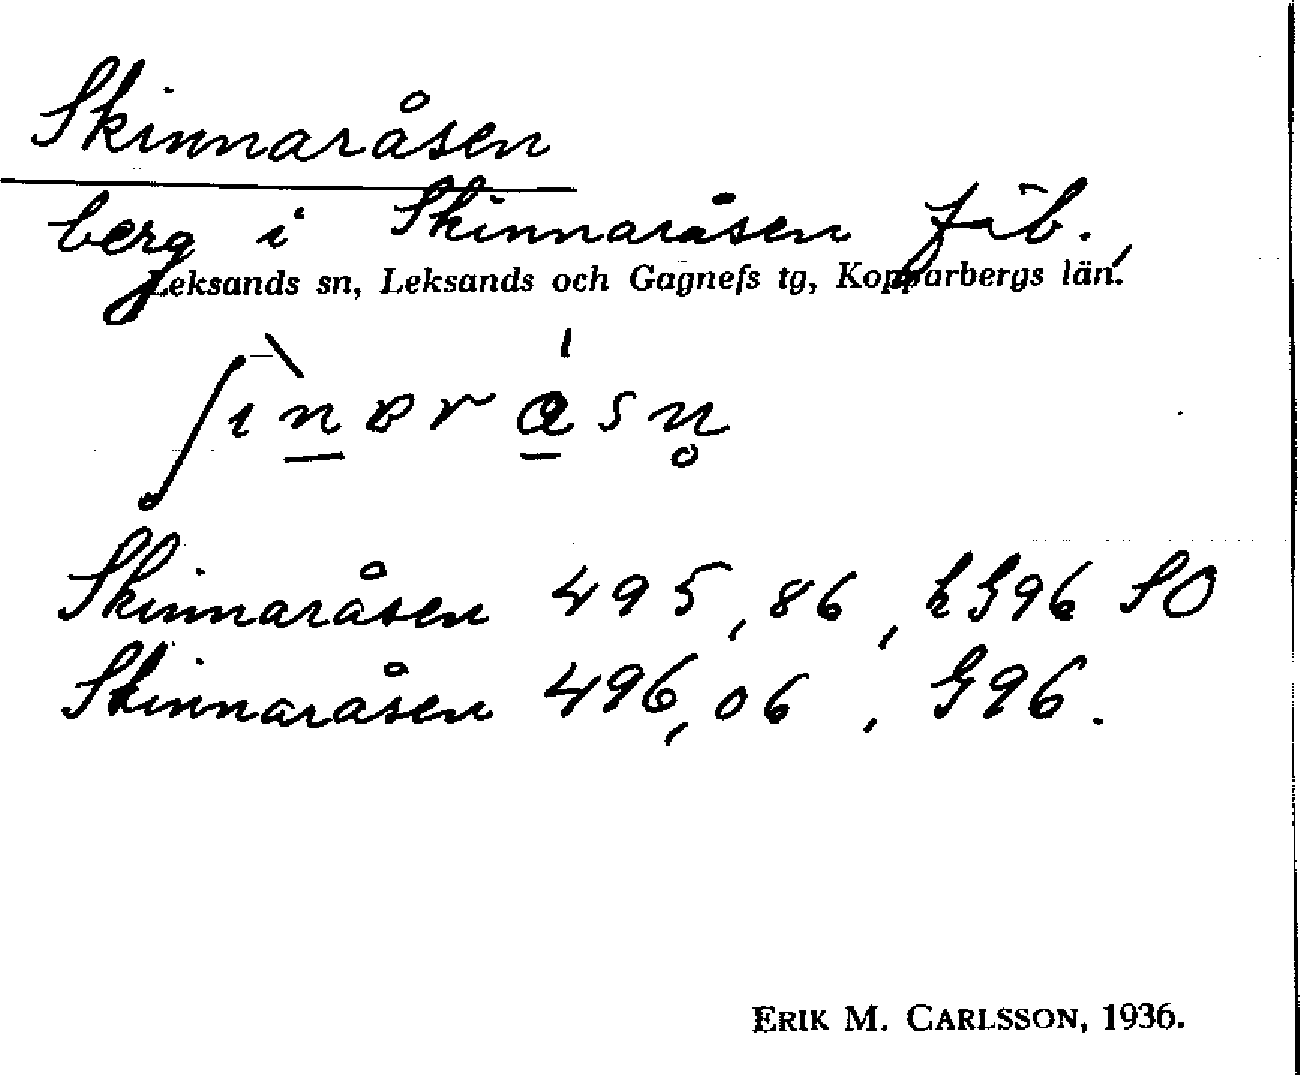 Skinnaråsen
berg i Skinnaråsen fäb.,
Leksands sn, Leksands och Gagnefs tg, Kopparbergs län.
Skinnaråsen 495,86, hS96 SO
Skinnaråsen 496,06, S96.
ERIK M. CARLSSON, 1936.